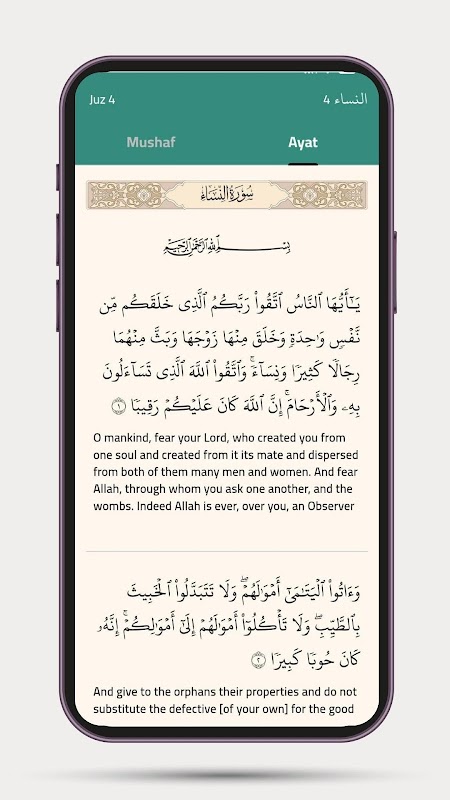 Juz 4
4 النساء
Mushaf
Ayat
سُورَةُ النِّسَاءِ
بِسْمِ اللَّهِ الرَّحْمَٰنِ الرَّحِيمِ
يَـٰٓأَيُّهَا ٱلنَّاسُ ٱتَّقُوا۟ رَبَّكُمُ ٱلَّذِى خَلَقَكُم مِّن
نَّفْسٍ وَٰحِدَةٍ وَخَلَقَ مِنْهَا زَوْجَهَا وَبَثَّ مِنْهُمَا
رِجَالًا كَثِيرًا وَنِسَآءً ۚ وَٱتَّقُوا۟ ٱللَّهَ ٱلَّذِى تَسَآءَلُونَ
بِهِۦ وَٱلْأَرْحَامَ ۚ إِنَّ ٱللَّهَ كَانَ عَلَيْكُمْ رَقِيبًا ١
O mankind, fear your Lord, who created you from
one soul and created from it its mate and dispersed
from both of them many men and women. And fear
Allah, through whom you ask one another, and the
wombs. Indeed Allah is ever, over you, an Observer
وَءَاتُوا۟ ٱلْيَتَـٰمَىٰٓ أَمْوَٰلَهُمْ ۖ وَلَا تَتَبَدَّلُوا۟ ٱلْخَبِيثَ
بِٱلطَّيِّبِ ۖ وَلَا تَأْكُلُوٓا۟ أَمْوَٰلَهُمْ إِلَىٰٓ أَمْوَٰلِكُمْ ۚ إِنَّهُۥ
كَانَ حُوبًا كَبِيرًا ٢
And give to the orphans their properties and do not
substitute the defective [of your own] for the good